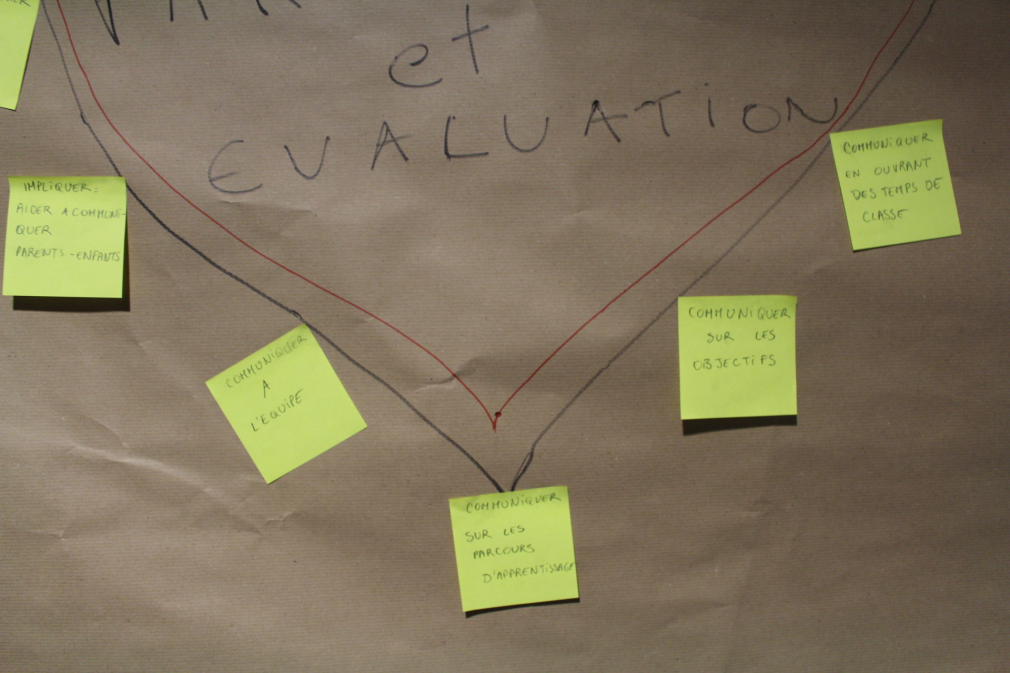 et
EVALUATION
IMPLIQUER:
AIDER A COMMUNI-
QUER
PARENTS-ENFANTS
COMMUNIQUER
A
L'EQUIPE
COMMUNIQUER
SUR LES
PARCOURS
D'APPRENTISSAGE
COMMUNIQUER
SUR LES
OBJECTIFS
COMMUNIQUER
EN OUVRANT
DES TEMPS DE
CLASSE